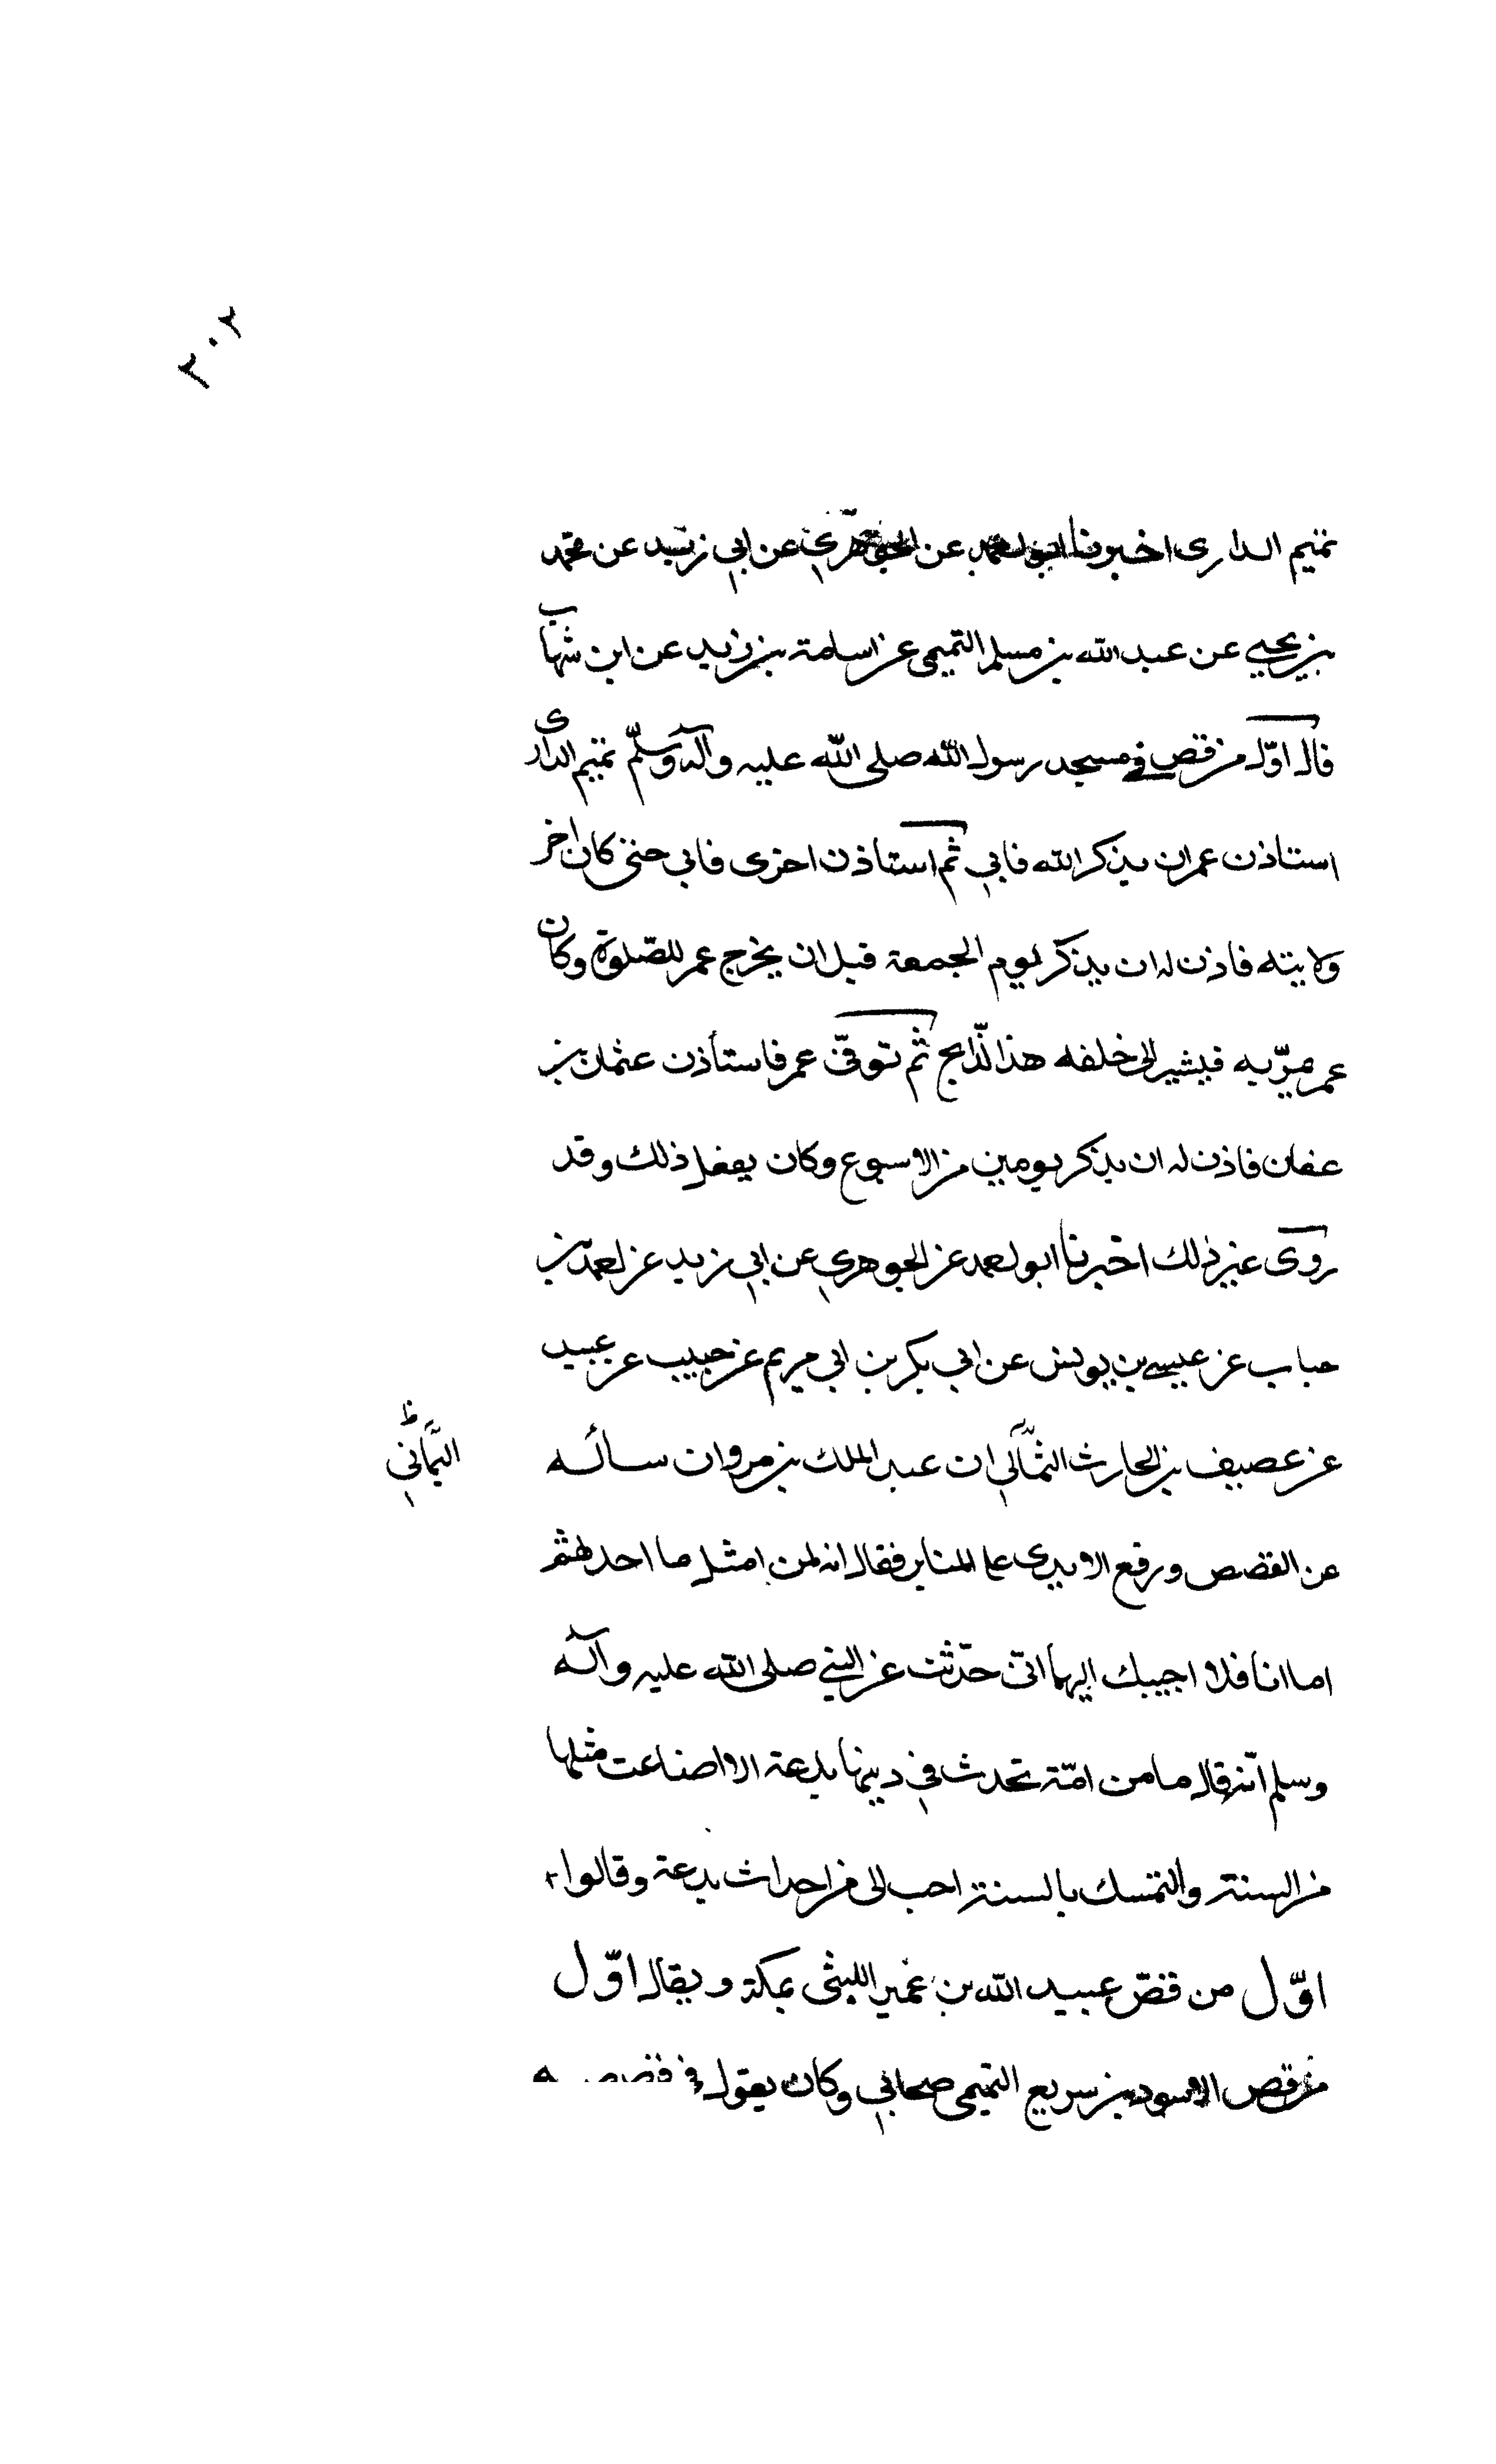 ٣٠٢
تميم الداري اخبرنا ابو احمد عن الجوهري عن ابي زيد عن محمد
بن يحيى عن عبد الله بن مسلم التميمي عن اسامة بن زيد عن ابن شهاب
قال اوّل من قص في مسجد رسول الله صلى الله عليه وآله وسلّم تميم الداري
استاذن عمر ان يذكر الله فابي ثم استاذن اخرى فابي حتى كان اخر
ولايته فاذن له ان يذكر يوم الجمعة قبل ان يخرج عمر للصّلوة وكان
عمر يمرّ به فيشير الى خلفه هذا الذابح ثم توفيّ عمر فاستأذن عثمان بن
عفان فاذن له ان يذكر يومين من الاسبوع وكان يفعل ذلك وقد
روى غير ذلك اخبرنا ابو احمد عن الجوهري عن ابي زيد عن احمد بن
حباب عن عيسى بن يونس عن ابي بكر بن ابي مريم عن حبيب عن عبيد
عن عصيف بن الحارث الثمالي ان عبد الملك بن مروان سأله
اليماني ظ
عن القصص ورفع الايدي على المنابر فقال انه لمن امثل ما احدثتم
اما انا فلا اجيبك اليهما انّي حدّثت عن النبي صلى الله عليه وآله
وسلم انّه قال ما من امّة تحدث في دينها بدعة الا اضاعت مثلها
من السنة والتمسك بالسنة احب الى من احداث بدعة وقالوا
اوّل من قصّ عبيد الله بن عمير الليثى بمكة ويقال اوّل
من قص الاسود بن سريع التميمي صحابي وكان يقول في قصصه